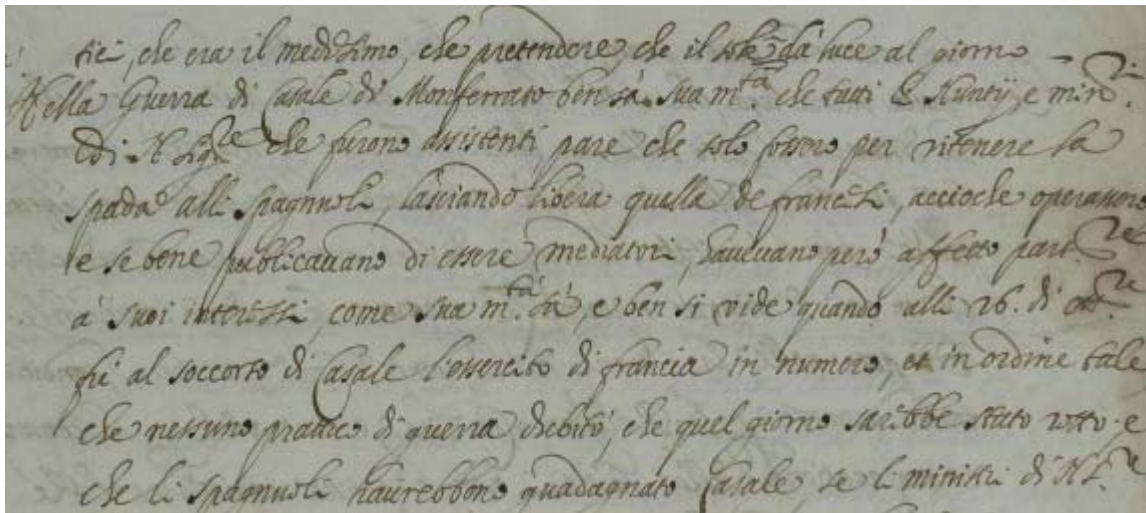 tie, che era il medesimo, che pretendere, che il sole dà luce al giorno -
Nella Guerra di Casale di Monferrato ben sà sua m.tà che tutti li Nuntij e min.ri
di N. Sig.re che furono assistenti pare che solo fossero per ritenere la
spada alli spagnuoli, lasciando libera quella de francesi, accioche operassero
e se bene publicavano di essere mediatori, havevano però affetto part.re
à suoi interessi come sua m.tà sà, e ben si vide quando alli 26. di ott.re
fù al soccorso di Casale l'essercito di francia in numero, et in ordine tale
che nessuno prattico di guerra dubitò, che quel giorno sarebbe stato rotto e
che li spagnuoli haurebbono guadagnato Casale se li ministri di N.S.re